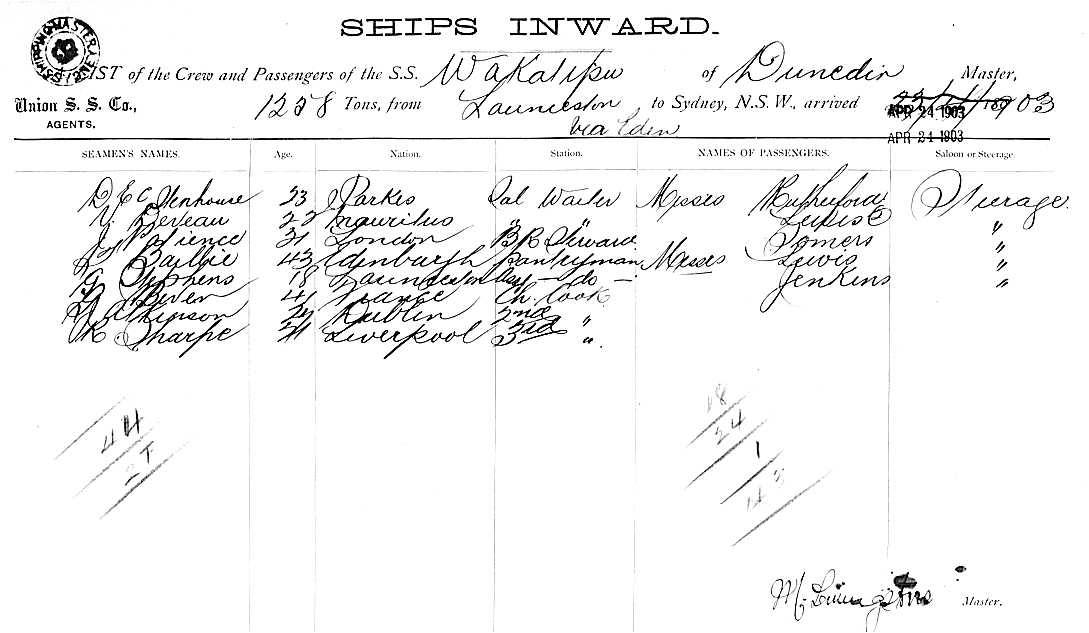 SHIPS INWARD.
SHIPPING MASTER SYDNEY
LIST of the Crew and Passengers of the S.S. Wakatipu of Dunedin Master,
Union S. S. Co.,
AGENTS.
1258 Tons, from Launceston to Sydney, N.S.W., arrived 1903
via Eden
APR 24 1903
APR 24 1903
SEAMEN'S NAMES. Age. Nation. Station. NAMES OF PASSENGERS. Saloon or Steerage
D E C Stenhouse 23 Parkes Sal Waiter Messes Rutherford Steerage
Beveau 22 Mauritus " " "
J Patience 31 London B R Steward Somers "
Baillie 43 Edinburgh Pantryman Messes Lewis "
G Stephens 18 Launceston Asst - do - Jenkins "
41 France Ch. Cook
Atkinson Dublin 2nd "
R Sharpe 21 Liverpool 3rd "
44
27
18
24
1
43
Master.